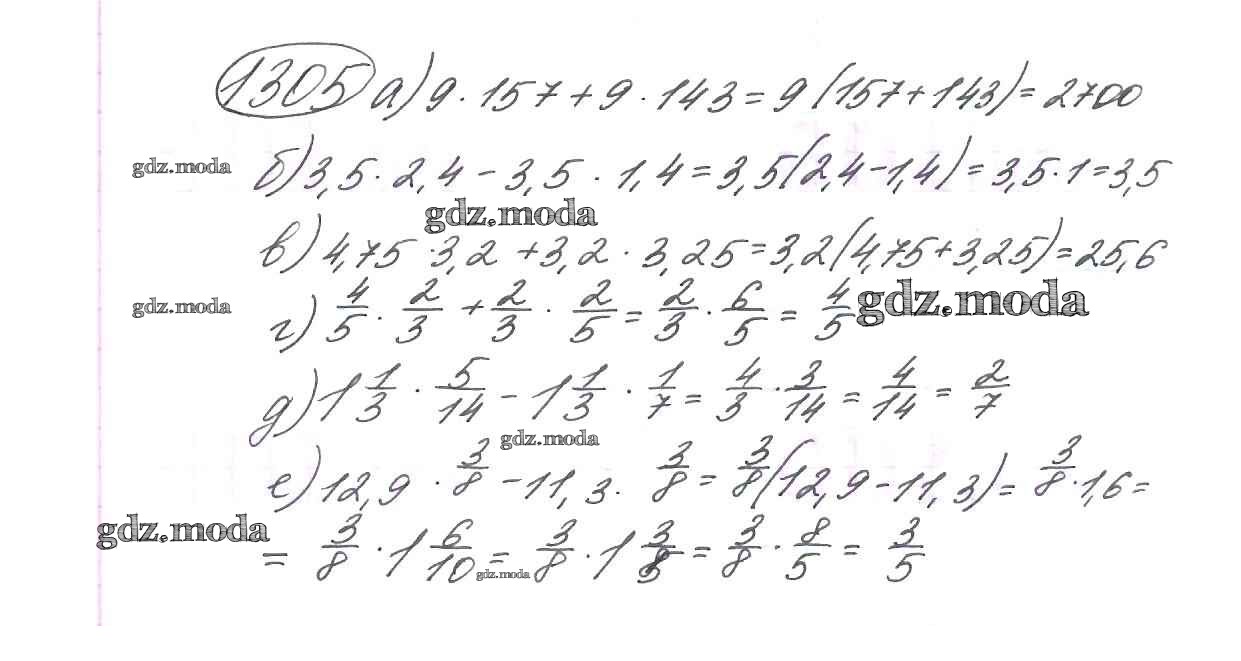 1305 а) 9 · 157 + 9 · 143 = 9 (157 + 143) = 2700
gdz.moda
б) 3,5 · 2,4 - 3,5 · 1,4 = 3,5 (2,4 - 1,4) = 3,5 · 1 = 3,5
gdz.moda
в) 4,75 · 3,2 + 3,2 · 3,25 = 3,2 (4,75 + 3,25) = 25,6
gdz.moda
г) 4/5 · 2/3 + 2/3 · 2/5 = 2/3 · 6/5 = 4/5
gdz.moda
д) 1 1/3 · 5/14 - 1 1/3 · 1/7 = 4/3 · 3/14 = 4/14 = 2/7
gdz.moda
е) 12,9 · 3/8 - 11,3 · 3/8 = 3/8 (12,9 - 11,3) = 3/8 · 1,6 =
gdz.moda
= 3/8 · 1 6/10 = 3/8 · 1 3/5 = 3/8 · 8/5 = 3/5
gdz.moda